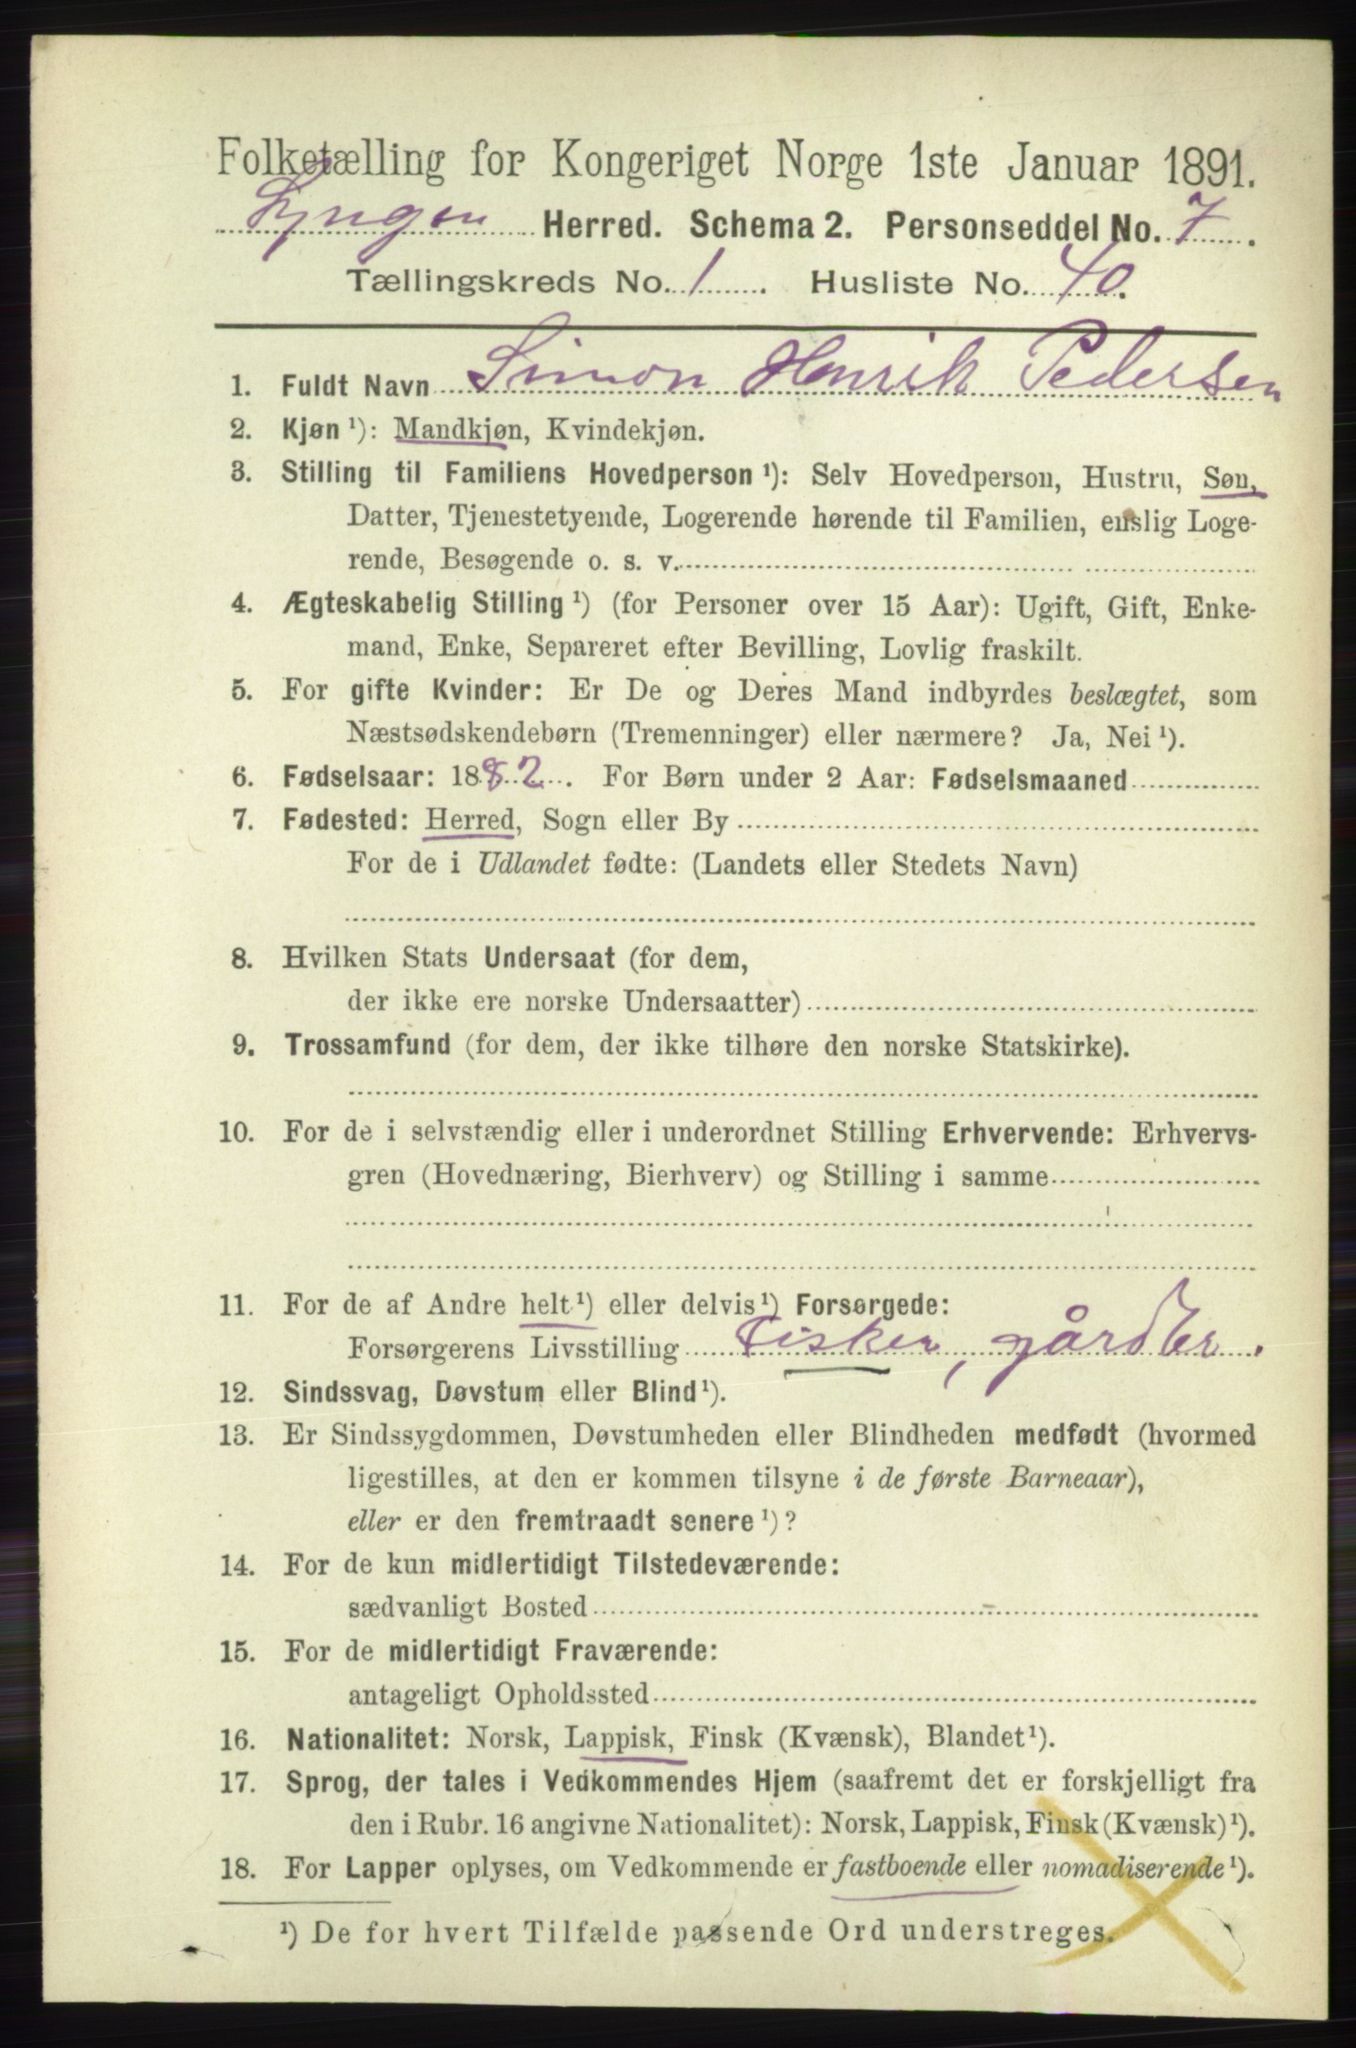 Folketælling for Kongeriget Norge 1ste Januar 1891.
Lyngen Herred. Schema 2. Personseddel No. 7.
Tællingskreds No. 1. Husliste No. 40.
1. Fuldt Navn Simon Henrik Pedersen
2. Kjøn ¹): Mandkjøn, Kvindekjøn.
3. Stilling til Familiens Hovedperson ¹): Selv Hovedperson, Hustru, Søn,
Datter, Tjenestetyende, Logerende hørende til Familien, enslig Loge-
rende, Besøgende o. s. v.
4. Ægteskabelig Stilling ¹) (for Personer over 15 Aar): Ugift, Gift, Enke-
mand, Enke, Separeret efter Bevilling, Lovlig fraskilt.
5. For gifte Kvinder: Er De og Deres Mand indbyrdes beslægtet, som
Næstsødskendebørn (Tremenninger) eller nærmere? Ja, Nei ¹).
6. Fødselsaar: 1882. For Børn under 2 Aar: Fødselsmaaned
7. Fødested: Herred, Sogn eller By
For de i Udlandet fødte: (Landets eller Stedets Navn)
8. Hvilken Stats Undersaat (for dem,
der ikke ere norske Undersaatter)
9. Trossamfund (for dem, der ikke tilhøre den norske Statskirke).
10. For de i selvstændig eller i underordnet Stilling Erhvervende: Erhvervs-
gren (Hovednæring, Bierhverv) og Stilling i samme
11. For de af Andre helt ¹) eller delvis ¹) Forsørgede:
Forsørgerens Livsstilling Fisker, gårdbr.
12. Sindssvag, Døvstum eller Blind ¹).
13. Er Sindssygdommen, Døvstumheden eller Blindheden medfødt (hvormed
ligestilles, at den er kommen tilsyne i de første Barneaar),
eller er den fremtraadt senere ¹)?
14. For de kun midlertidigt Tilstedeværende:
sædvanligt Bosted
15. For de midlertidigt Fraværende:
antageligt Opholdssted
16. Nationalitet: Norsk, Lappisk, Finsk (Kvænsk), Blandet ¹).
17. Sprog, der tales i Vedkommendes Hjem (saafremt det er forskjelligt fra
den i Rubr. 16 angivne Nationalitet): Norsk, Lappisk, Finsk (Kvænsk) ¹).
18. For Lapper oplyses, om Vedkommende er fastboende eller nomadiserende ¹).
¹) De for hvert Tilfælde passende Ord understreges.